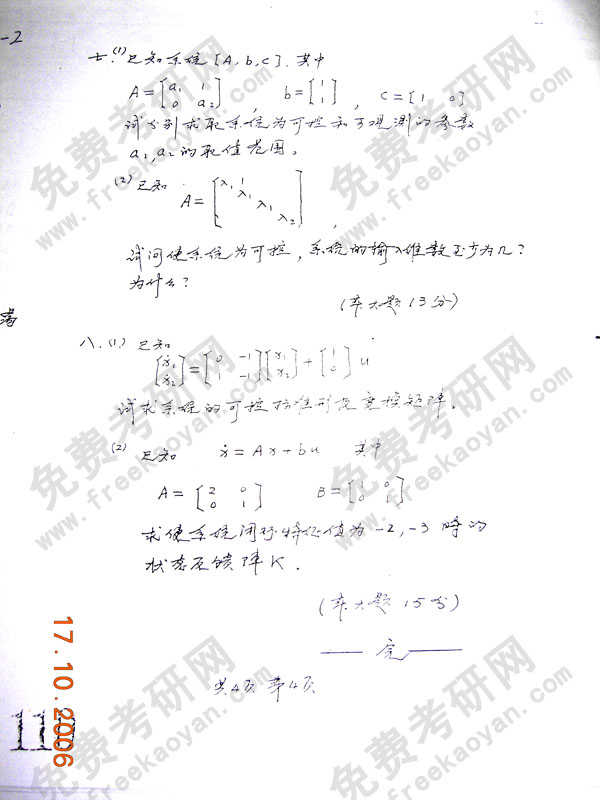 -2
七.(1) 已知系统[A,b,c].其中
A=[a₁ 1; 0 a₂], b=[1; 1], C=[1 0]
试分别求取系统为可控和可观测的参数
a₁,a₂的取值范围。
(2) 已知
A=[λ₁ 1; λ₁; λ₁; λ₂],
试问使系统为可控,系统的输入维数至少为几?
为什么?
(本大题13分)
八.(1.) 已知
[ẋ₁; ẋ₂]=[0 -1; 1 -1][x₁; x₂]+[1; 0]u
试求系统的可控标准形及变换矩阵。
(2) 已知 ẋ=Ax+bu 其中
A=[2 0; 0 1] B=[1 0; 0 1]
求使系统闭环特征值为-2,-3时的
状态反馈阵K.
(本大题15分)
—— 完 ——
共4页 第4页
17.10.2006
免费考研网
www.freekaoyan.com